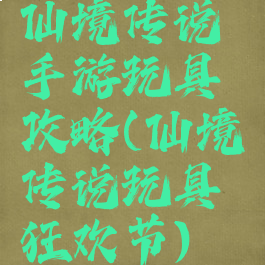 仙境传说
手游玩具
攻略(仙境
传说玩具
狂欢节)